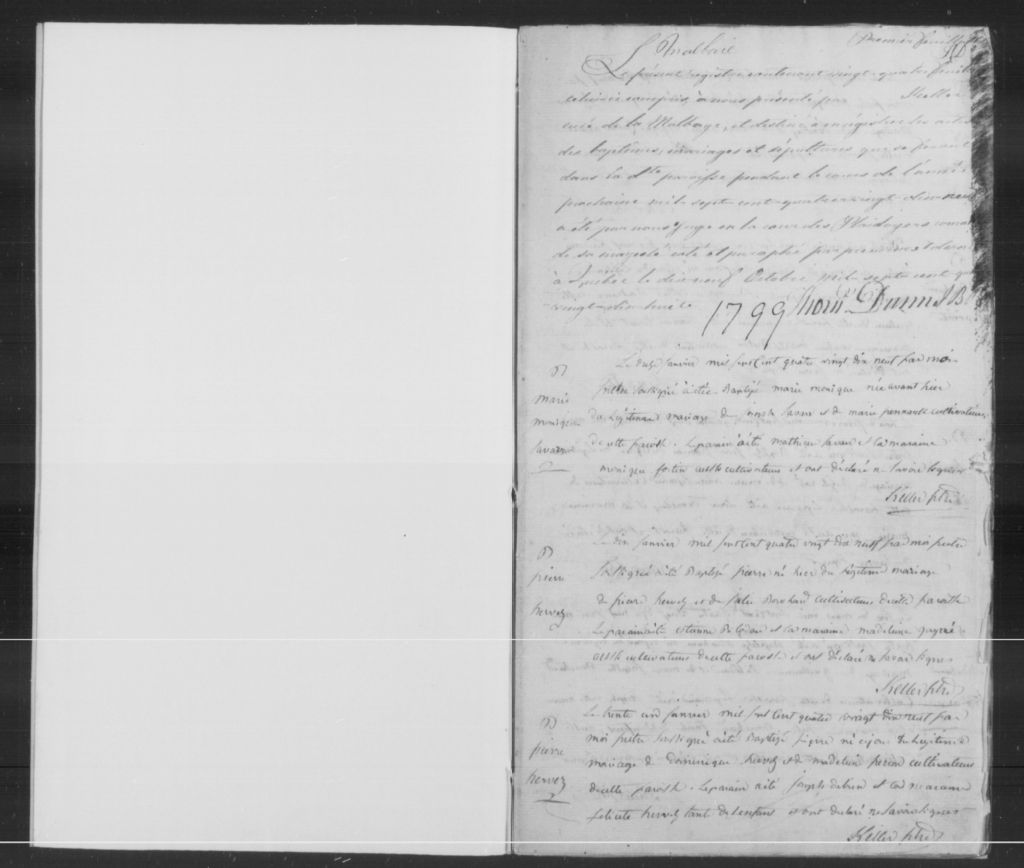 Premier feuillet
Malbaie
Le présent registre contenant vingt-quatre feuil
celui-ci compris, à nous présenté par Keller
curé de la Malbaye, et destiné à enregistrer les actes
des baptêmes, mariages et sépultures qui se feront
dans la dte paroisse pendant le cours de l'année
prochaine mil sept cent quatre vingt dix neuf
a été par nous Juge en la cour des Plaidoyers
de sa majesté coté et paraphé par premier et dernier
à Quebec le dix neuf Octobre mil sept cent qua
vingt dix huit
1799 Thoms Dunn J B
Le janvier mil sept Cent quatre vingt dix neuf par moi
B
prêtre Soussigné à été Baptisé marie monique née avant hier
marie
du légitime mariage de joseph savar et de marie cultivateurs
monique
savar
de cette paroisse. Le parain à été mathieu savar et la maraine
monique fortin cultivateurs et ont déclaré ne savoir signer
Keller ptre
Le dix janvier mil sept Cent quatre vingt dix neuf par moi prêtre
B
Soussigné à été Baptisé pierre né hier du légitime mariage
pierre
de pierre hervez et de Bouchard cultivateurs de cette paroisse
hervez
Le parain à été etienne et la maraine madeleine
cultivateurs de cette paroisse et ont déclaré ne savoir signer
Keller ptre
Le trente janvier mil sept Cent quatre vingt dix neuf par
B
moi prêtre Soussigné à été Baptisé pierre né du légitime
pierre
mariage de dominique hervez et de madelein cultivateurs
hervez
de cette paroisse. Le parain à été joseph et la maraine
felicité hervez tant de l'enfant et ont declaré ne savoir signer
Keller ptre